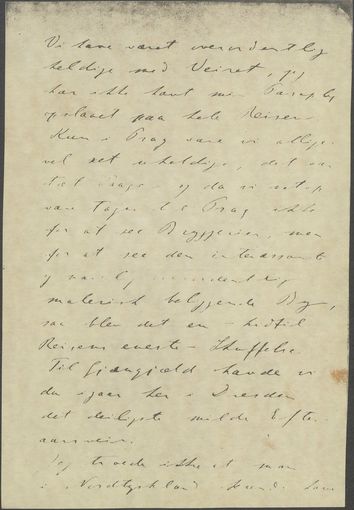 Vi have været overordentlig
heldige med Veiret, jeg
har ikke havt min Paraply
opslaaet paa hele Reisen.
Kun i Prag vare vi allige-
vel ret uheldige, det var
tæt Taage og da vi netop
vare tagne til Prag ikke
for at see Bryggerier, men
for at see den interessante
og
malerisk beliggende By,
saa blev det en hidtil
Reisens eneste Skuffelse
Til Gjengjæld havde vi
da igaar her i Dresden
det deiligste milde Efter-
aarsveir.
Jeg troede ikke at man
i Nordtyskland kunde have